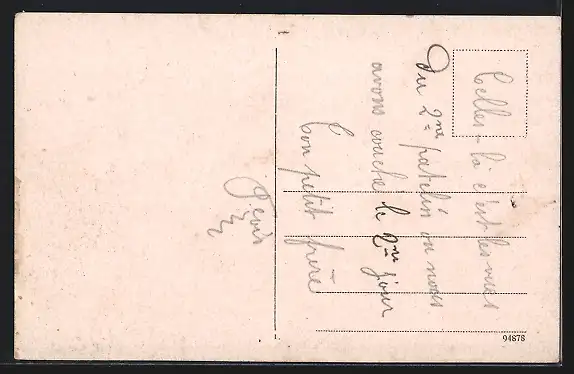 Celles-là c'est les vues
Du 2me patelin ou nous
avons couché le 2me jour
Ton petit frère
94878